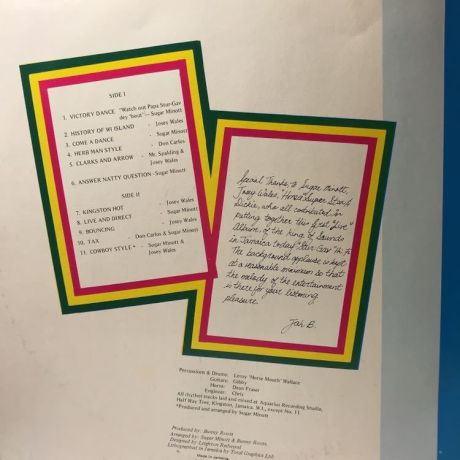 SIDE I
1. VICTORY DANCE "Watch out Papa Star-Gav
dey 'bout" - Sugar Minott
2. HISTORY OF WI ISLAND - Josey Wales
3. COME A DANCE - Sugar Minott
4. HERB MAN STYLE - Don Carlos
5. CLARKS AND ARROW - Mr. Spaulding &
Josey Wales
6. ANSWER NATTY QUESTION - Sugar Minott
SIDE II
7. KINGSTON HOT - Josey Wales
8. LIVE AND DIRECT - Sugar Minott
9. BOUNCING - Josey Wales
10. TAX - Don Carlos & Sugar Minott
11. COWBOY STYLE * - Sugar Minott &
Josey Wales
Special Thanks to Sugar Minott,
Josey Wales,
Dickie, who all contributed in
putting together this first "Live"
Album, of the king of Sounds
in Jamaica today "Star Gav" Hi-Fi
The background applause is kept
at a reasonable minimum so that
the melody of the entertainment
is there for your listening
pleasure.
Jah B.
Percussion & Drums: Leroy "Horse Mouth" Wallace
Guitars: Gibby
Horns: Dean Fraser
Engineer: Chris
All rhythm tracks laid and mixed at Aquarius Recording Studio,
Half Way Tree, Kingston, Jamaica. W.I., except No. 11
*Produced and arranged by Sugar Minott
Produced by: Bunny Roots
Arranged by: Sugar Minott & Bunny Roots.
Designed by Leighton Redwood
Lithographed in Jamaica by Total Graphics Ltd.
Made in Jamaica